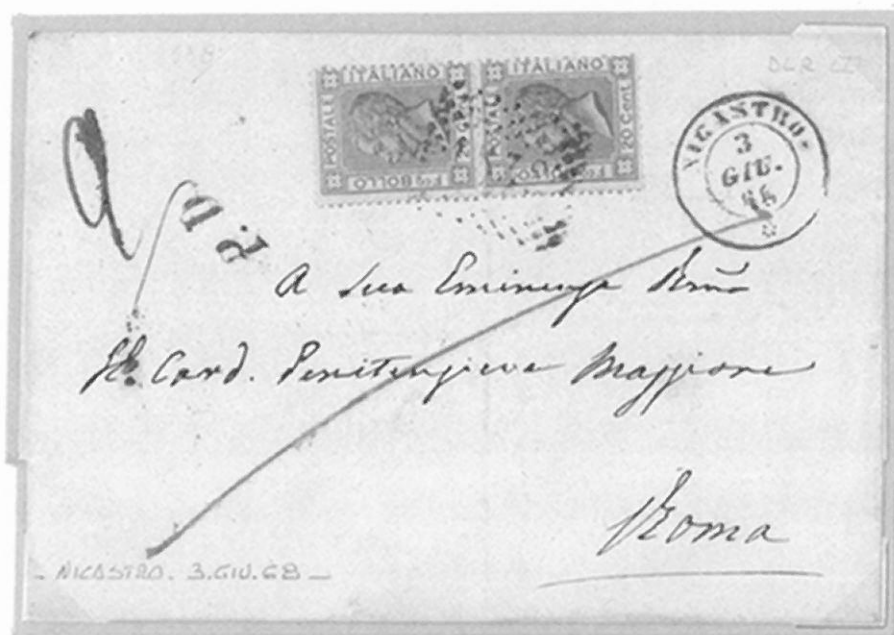 POSTALE ITALIANO 20 Cent. FCO BOLLO
POSTALE ITALIANO 20 Cent.
NICASTRO
3
GIU.
P.D.
A Sua Eminenza Rma
Il Card. Penitenziere Maggiore
Roma
- NICASTRO. 3.GIU.68 -